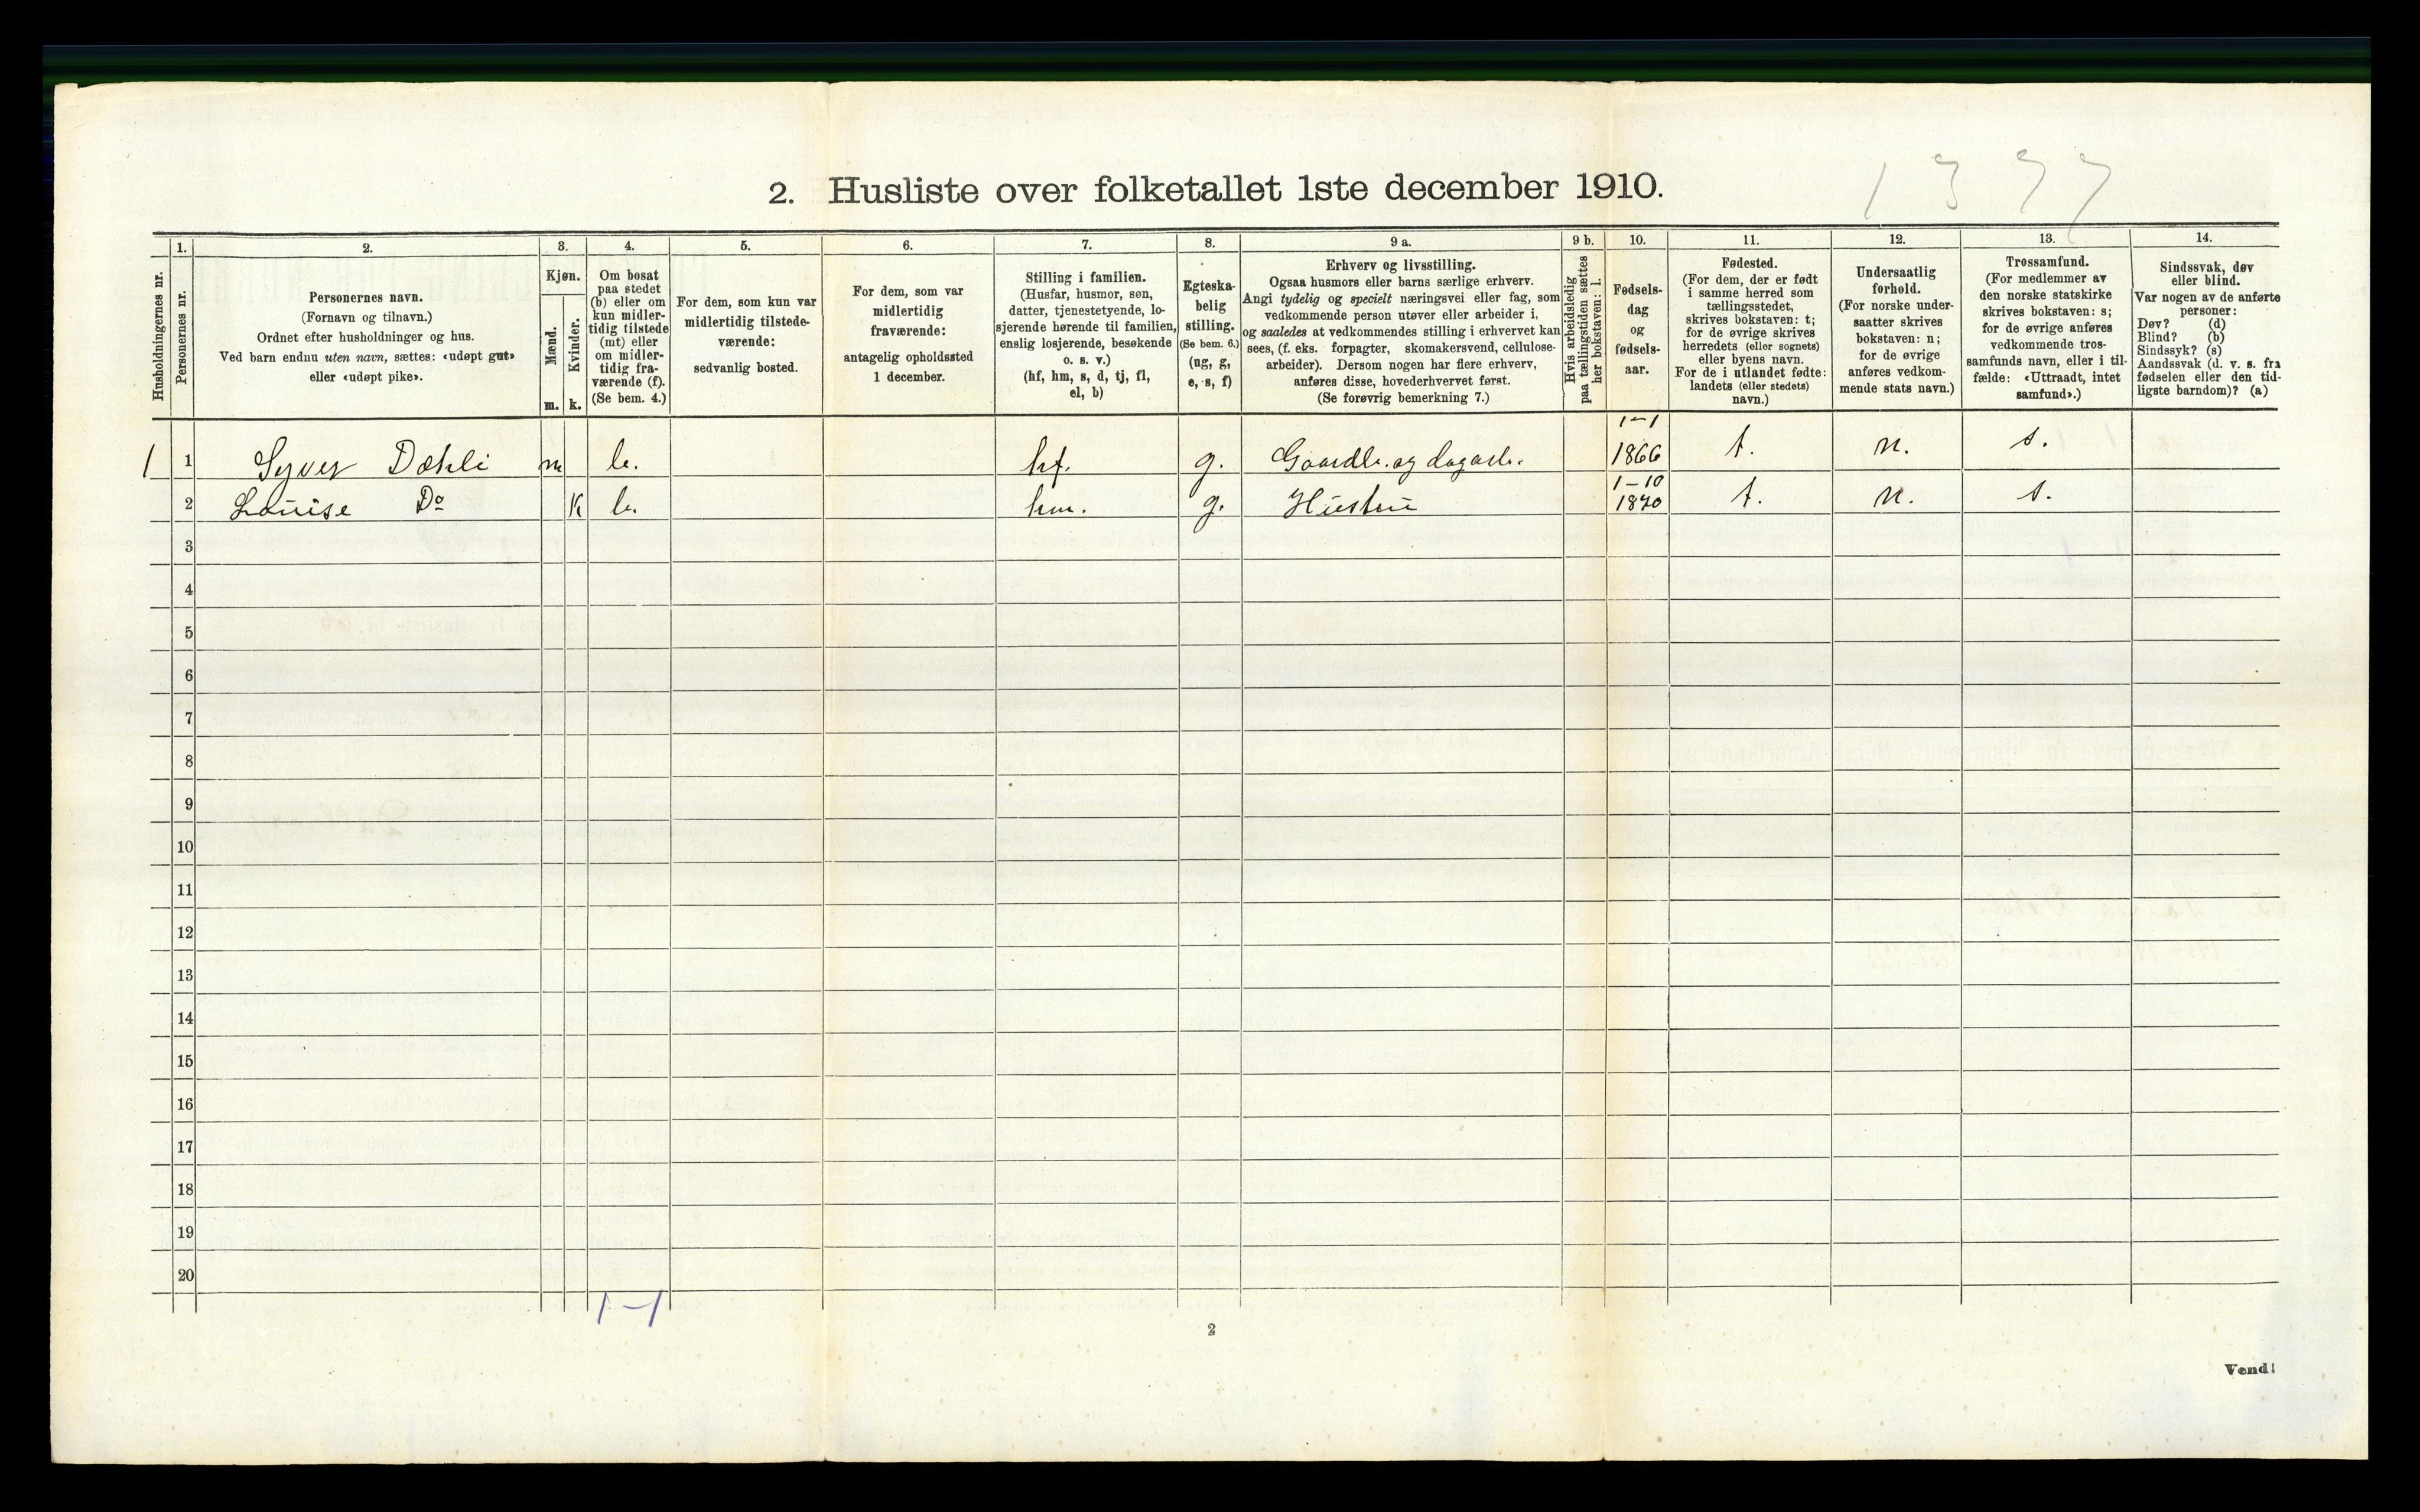 1377
2. Husliste over folketallet 1ste december 1910.
Husholdningernes nr.
1.
Personernes nr.
2.
Personernes navn.
(Fornavn og tilnavn.)
Ordnet efter husholdninger og hus.
Ved barn endnu uten navn, sættes: «udøpt gut»
eller «udøpt pike».
3.
Kjøn.
Mænd.
m.
Kvinder.
k.
4.
Om bosat
paa stedet
(b) eller om
kun midler-
tidig tilstede
(mt) eller
om midler-
tidig fra-
værende (f).
(Se bem. 4.)
5.
For dem, som kun var
midlertidig tilstede-
værende:
sedvanlig bosted.
6.
For dem, som var
midlertidig
fraværende:
antagelig opholdssted
1 december.
7.
Stilling i familien.
(Husfar, husmor, søn,
datter, tjenestetyende, lo-
sjerende hørende til familien,
enslig losjerende, besøkende
o. s. v.)
(hf, hm, s, d, tj, fl,
el, b)
8.
Egteska-
belig
stilling.
(Se bem. 6.)
(ng, g,
e, s, f)
9 a.
Erhverv og livsstilling.
Ogsaa husmors eller barns særlige erhverv.
Angi tydelig og specielt næringsvei eller fag, som
vedkommende person utøver eller arbeider i,
og saaledes at vedkommendes stilling i erhvervet kan
sees, (f. eks. forpagter, skomakersvend, cellulose-
arbeider). Dersom nogen har flere erhverv,
anføres disse, hovederhvervet først.
(Se forøvrig bemerkning 7.)
9 b.
Hvis arbeidsledig
paa tællingstiden sættes
her bokstaven: l.
10.
Fødsels-
dag
og
fødsels-
aar.
11.
Fødested.
(For dem, der er født
i samme herred som
tællingsstedet,
skrives bokstaven: t;
for de øvrige skrives
herredets (eller sognets)
eller byens navn.
For de i utlandet fødte:
landets (eller stedets)
navn.)
12.
Undersaatlig
forhold.
(For norske under-
saatter skrives
bokstaven: n;
for de øvrige
anføres vedkom-
mende stats navn.)
13.
Trossamfund.
(For medlemmer av
den norske statskirke
skrives bokstaven: s;
for de øvrige anføres
vedkommende tros-
samfunds navn, eller i til-
fælde: «Uttraadt, intet
samfund».)
14.
Sindssvak, døv
eller blind.
Var nogen av de anførte
personer:
Døv? (d)
Blind? (b)
Sindssyk? (s)
Aandssvak (d. v. s. fra
fødselen eller den tid-
ligste barndom)? (a)
1 1 Syver Dæhli m b. hf. g. Gaardb. og dagarb. 1-1 1866 t. n. s.
2 Louise Do K b. hm. g. Hustru 1-10 1870 t. n. s.
3
4
5
6
7
8
9
10
11
12
13
14
15
16
17
18
19
20
1-1
2
Vend!